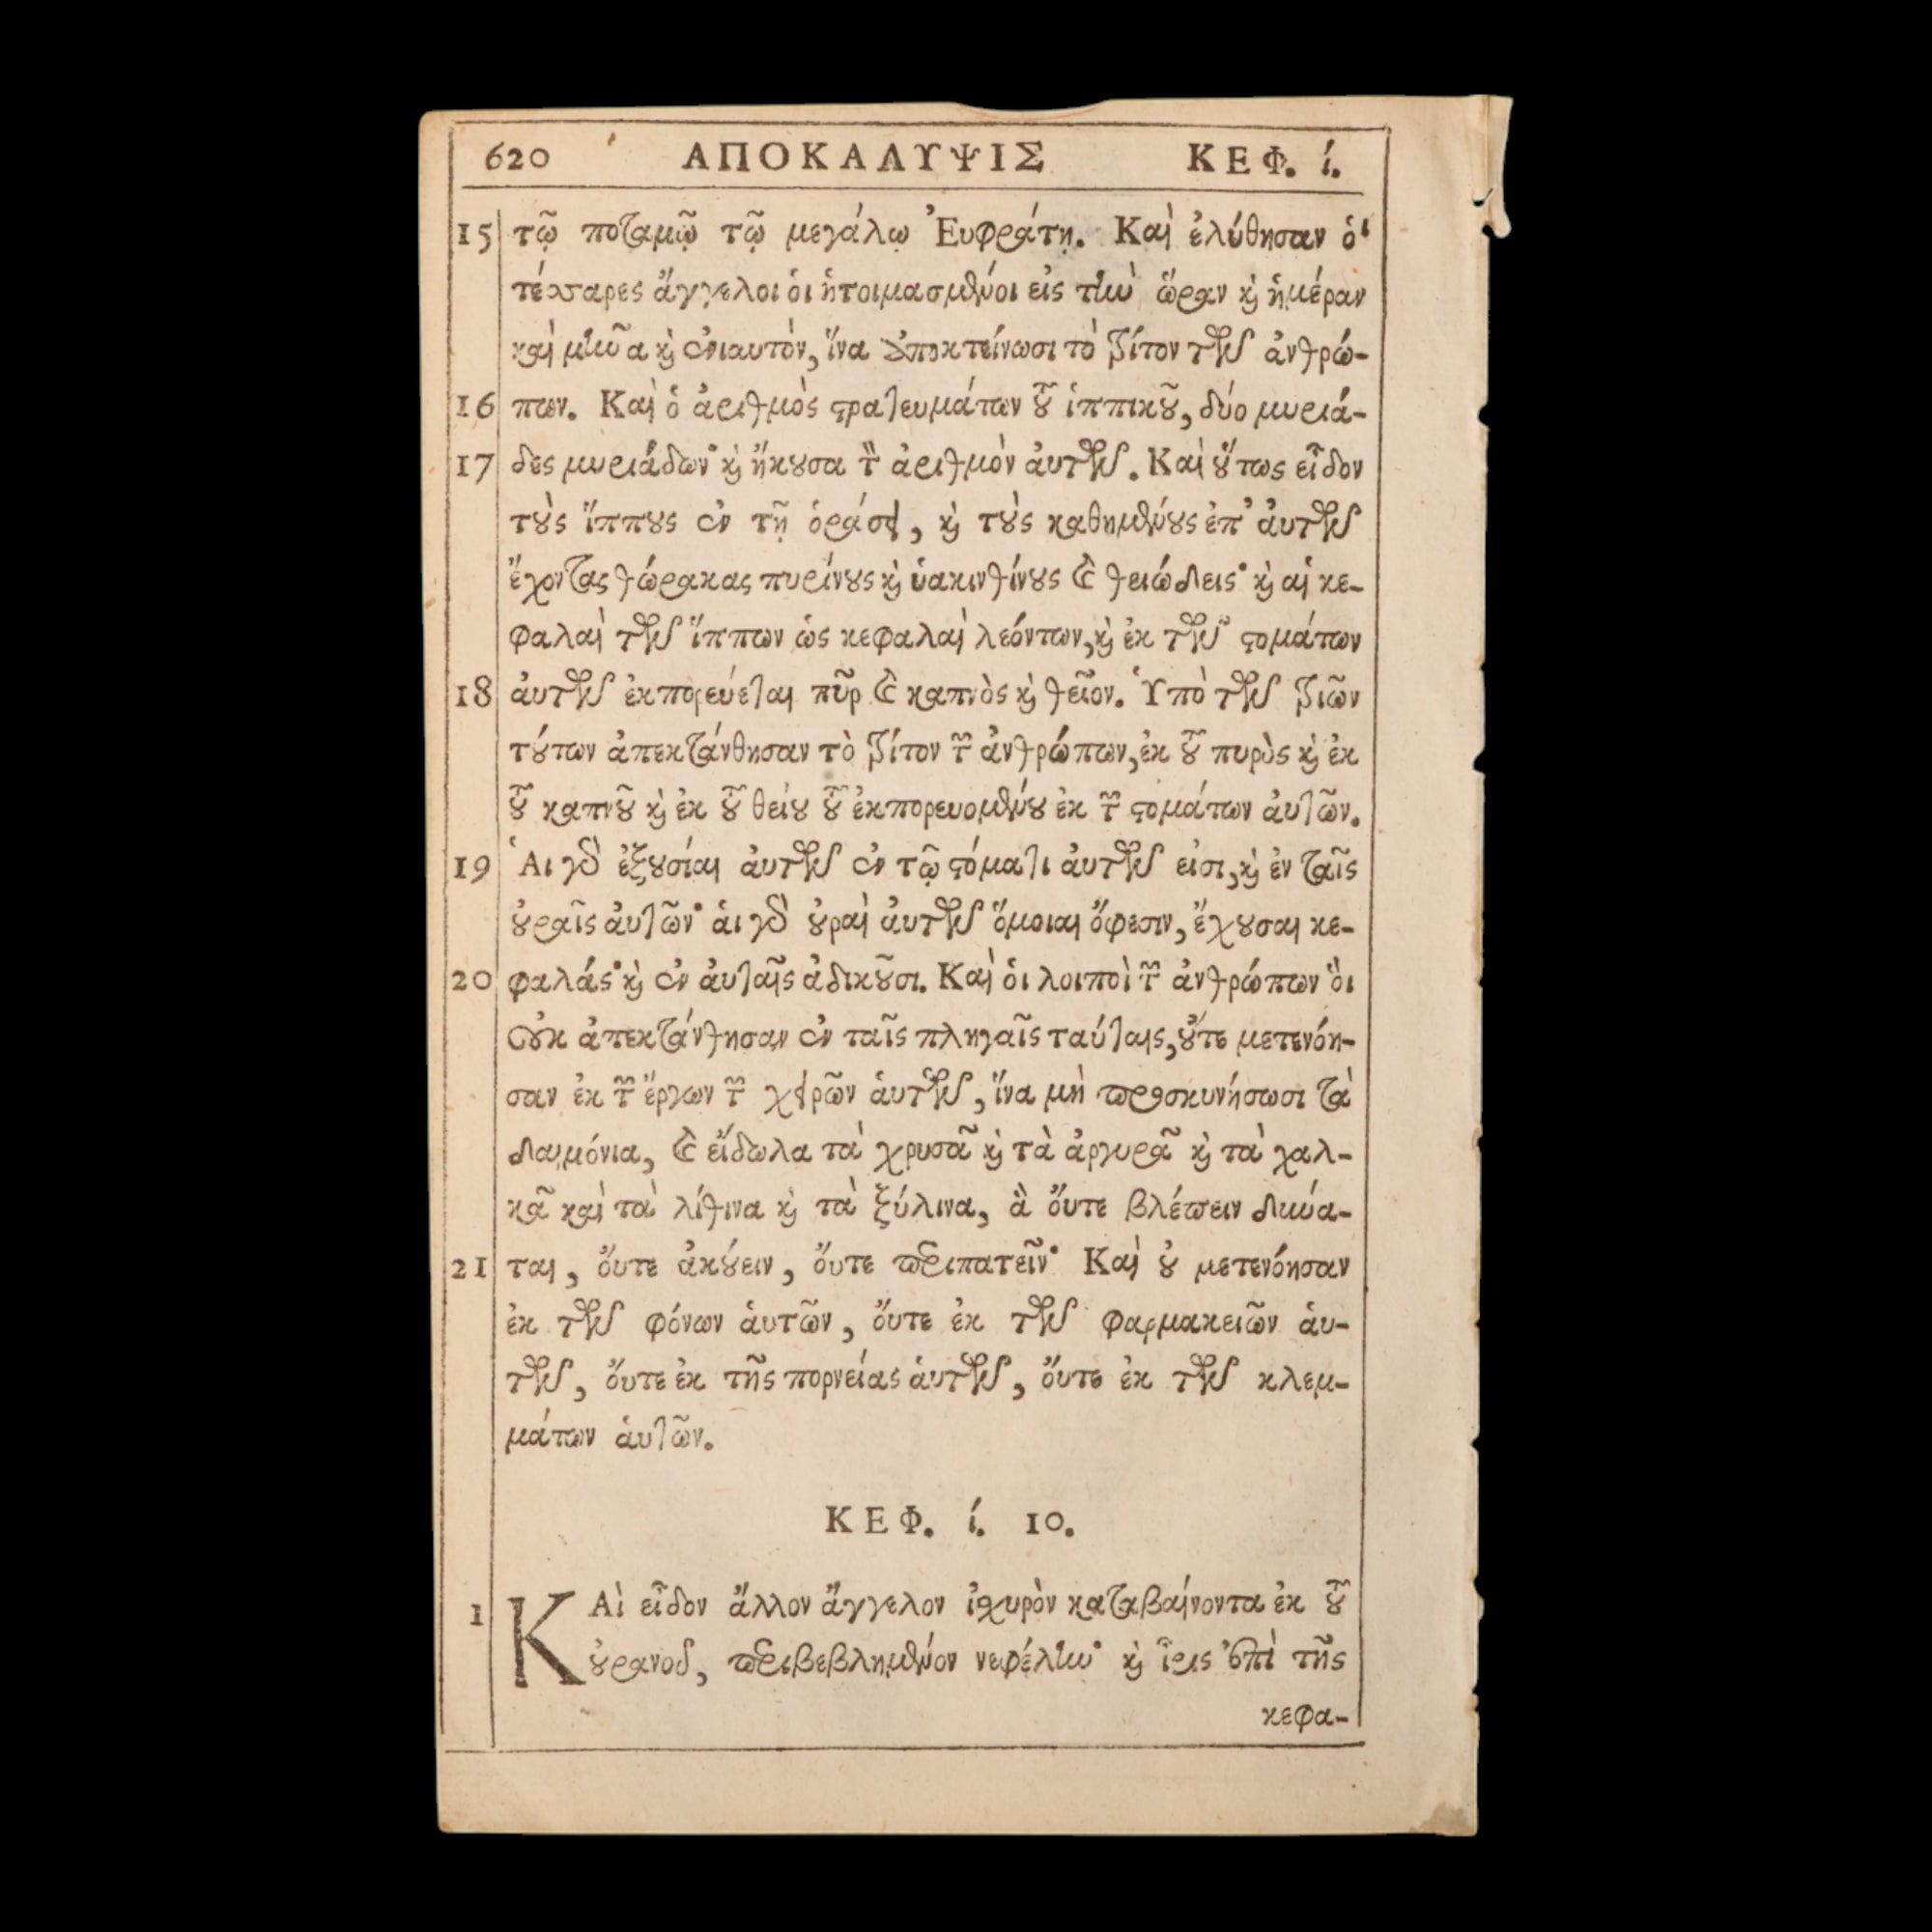 620 ΑΠΟΚΑΛΥΨΙΣ ΚΕΦ. ί.
15 τῷ ποταμῷ τῷ μεγάλῳ Ἐυφράτῃ. Καὶ ἐλύθησαν ὁι
τέσσαρες ἄγγελοι ὁι ἡτοιμασμένοι εἰς τὴν ὥραν ϗ ἡμέραν
καὶ μῆνα ϗ ἐνιαυτὸν, ἵνα ἀποκτείνωσι τὸ τρίτον τῶν ἀνθρώ-
16 πων. Καὶ ὁ ἀριθμὸς ϛρατευμάτων τȣ͂ ἱππικȣ͂, δύο μυριά-
17 δες μυριάδων· ϗ ἤκȣσα τὸν ἀριθμὸν ἀυτῶν. Καὶ ȣ̔́τως εἶδον
τȣ̀ς ἵππȣς ἐν τῇ ὁράσει, ϗ τȣ̀ς καθημένȣς ἐπ' ἀυτῶν
ἔχοντας θώρακας πυρίνȣς ϗ ὑακινθίνȣς ϗ θειώδεις· ϗ αἱ κε-
φαλαὶ τῶν ἵππων ὡς κεφαλαὶ λεόντων, ϗ ἐκ τῶν ϛομάτων
18 ἀυτῶν ἐκπορεύεται πῦρ ϗ καπνὸς ϗ θεῖον. Ὑπὸ τῶν τριῶν
τȣ́των ἀπεκτάνθησαν τὸ τρίτον τῶν ἀνθρώπων, ἐκ τȣ͂ πυρὸς ϗ ἐκ
τȣ͂ καπνȣ͂ ϗ ἐκ τȣ͂ θείȣ τȣ͂ ἐκπορευομένȣ ἐκ τῶν ϛομάτων ἀυτῶν.
19 Ἁι γὰρ ἐξȣσίαι ἀυτῶν ἐν τῷ ϛόματι ἀυτῶν εἰσι, ϗ ἐν ταῖς
ȣ̓ραῖς ἀυτῶν· ἁι γὰρ ȣ̓ραὶ ἀυτῶν ὅμοιαι ὄφεσιν, ἔχȣσαι κε-
20 φαλάς· ϗ ἐν ἀυταῖς ἀδικȣ͂σι. Καὶ ὁι λοιποὶ τῶν ἀνθρώπων ὃι
οὐκ ἀπεκτάνθησαν ἐν ταῖς πληγαῖς ταύταις, ȣ̓́τε μετενόη-
σαν ἐκ τῶν ἔργων τῶν χειρῶν ἁυτῶν, ἵνα μὴ προσκυνήσωσι τὰ
δαιμόνια, ϗ εἴδωλα τὰ χρυσᾶ ϗ τὰ ἀργυρᾶ ϗ τὰ χαλ-
κᾶ καὶ τὰ λίθινα ϗ τὰ ξύλινα, ἃ ὄυτε βλέπειν δύνα-
21 ται, ὄυτε ἀκȣ́ειν, ὄυτε περιπατεῖν· Καὶ ȣ̓ μετενόησαν
ἐκ τῶν φόνων ἁυτῶν, ὄυτε ἐκ τῶν φαρμακειῶν ἁυ-
τῶν, ὄυτε ἐκ τῆς πορνείας ἁυτῶν, ὄυτε ἐκ τῶν κλεμ-
μάτων ἁυτῶν.
ΚΕΦ. ί. 10.
1 ΚΑὶ εἶδον ἄλλον ἄγγελον ἰσχυρὸν καταβαίνοντα ἐκ τȣ͂
ȣ̓ρανοῦ, περιβεβλημένον νεφέλην· ϗ ἶρις ἐπὶ τῆς
κεφα-